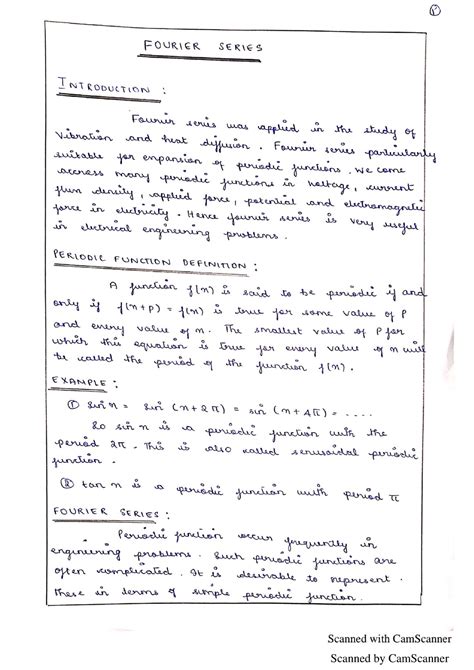 FOURIER SERIES
INTRODUCTION :
Fourier series was applied in the study of
vibration and heat diffusion. Fourier series particularly
suitable for expansion of periodic functions. We come
accross many periodic functions in voltage, current
flux density, applied force, potential and electromagnetic
force in electricity. Hence fourier series is very useful
in electrical engineering problems.
PERIODIC FUNCTION DEFINITION :
A function f(x) is said to be periodic if and
only if f(x+p) = f(x) is true for some value of P
and every value of x. The smallest value of P for
which this equation is true for every value of x will
be called the period of the function f(x).
EXAMPLE :
① sin x = sin (x+2π) = sin (x+4π) = ....
So sin x is a periodic function with the
period 2π. This is also called senusoidal periodic
function.
② tan x is a periodic function with period π
FOURIER SERIES :
Periodic function occur frequently in
engineering problems. Such periodic functions are
often complicated. It is desirable to represent
these in terms of simple periodic function.
Scanned with CamScanner
Scanned by CamScanner